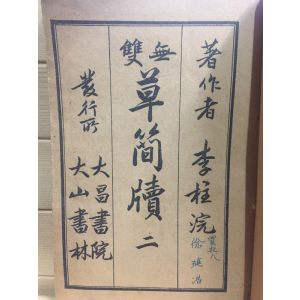 著作者 李柱浣
無雙
草簡牘 二
發行所
大昌書院
大山書林